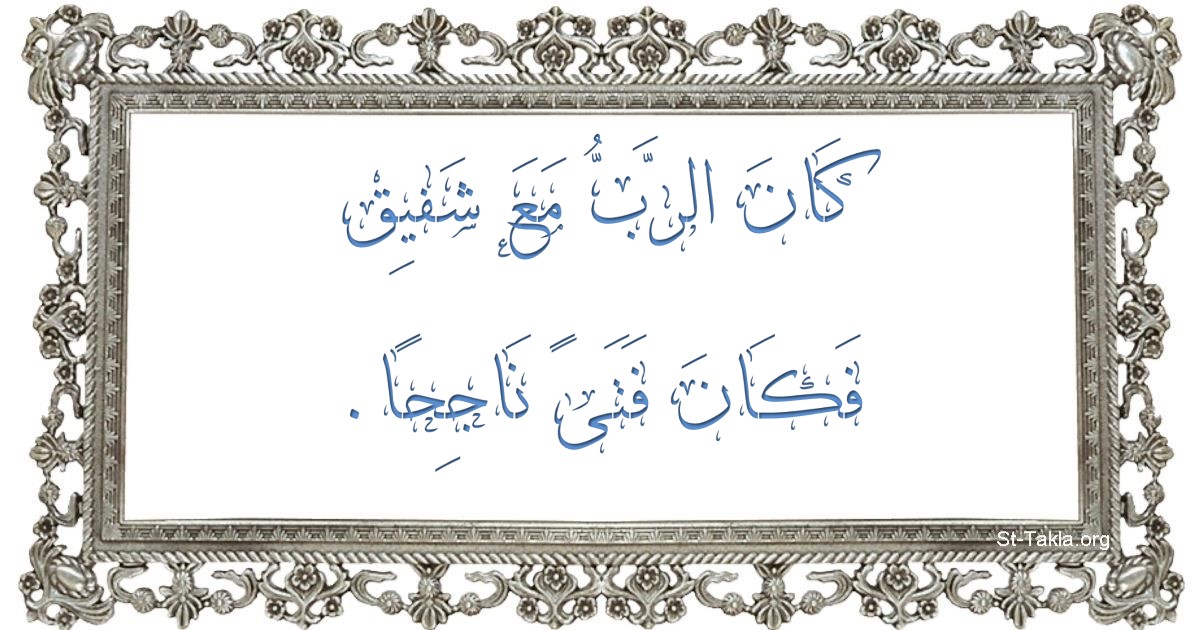 كَانَ الرَّبُّ مَعَ شَفِيقْ
فَكَانَ فَتَىً نَاجِحًا .
St-Takla.org